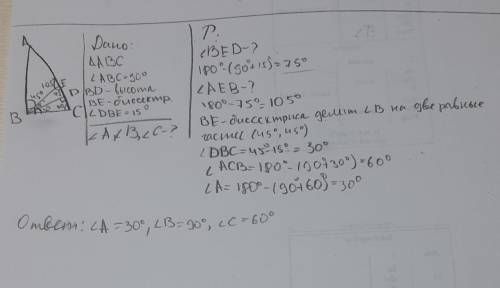 A
45°
105°
E
D
B
C
Дано:
△ABC
∠ABC=90°
BD-высота
BE-биссектр.
∠DBE=15°
∠A,∠B,∠C-?
Р:
∠BED-?
180°-(90°+15)=75°
∠AEB-?
180°-75°=105°
BE-биссектриса делит ∠B на две равные
части (45°,45°)
∠DBC=45°-15°=30°
∠ACB=180°-(90°+30°)=60°
∠A=180°-(90°+60°)=30°
Ответ: ∠A=30°,∠B=90°,∠C=60°